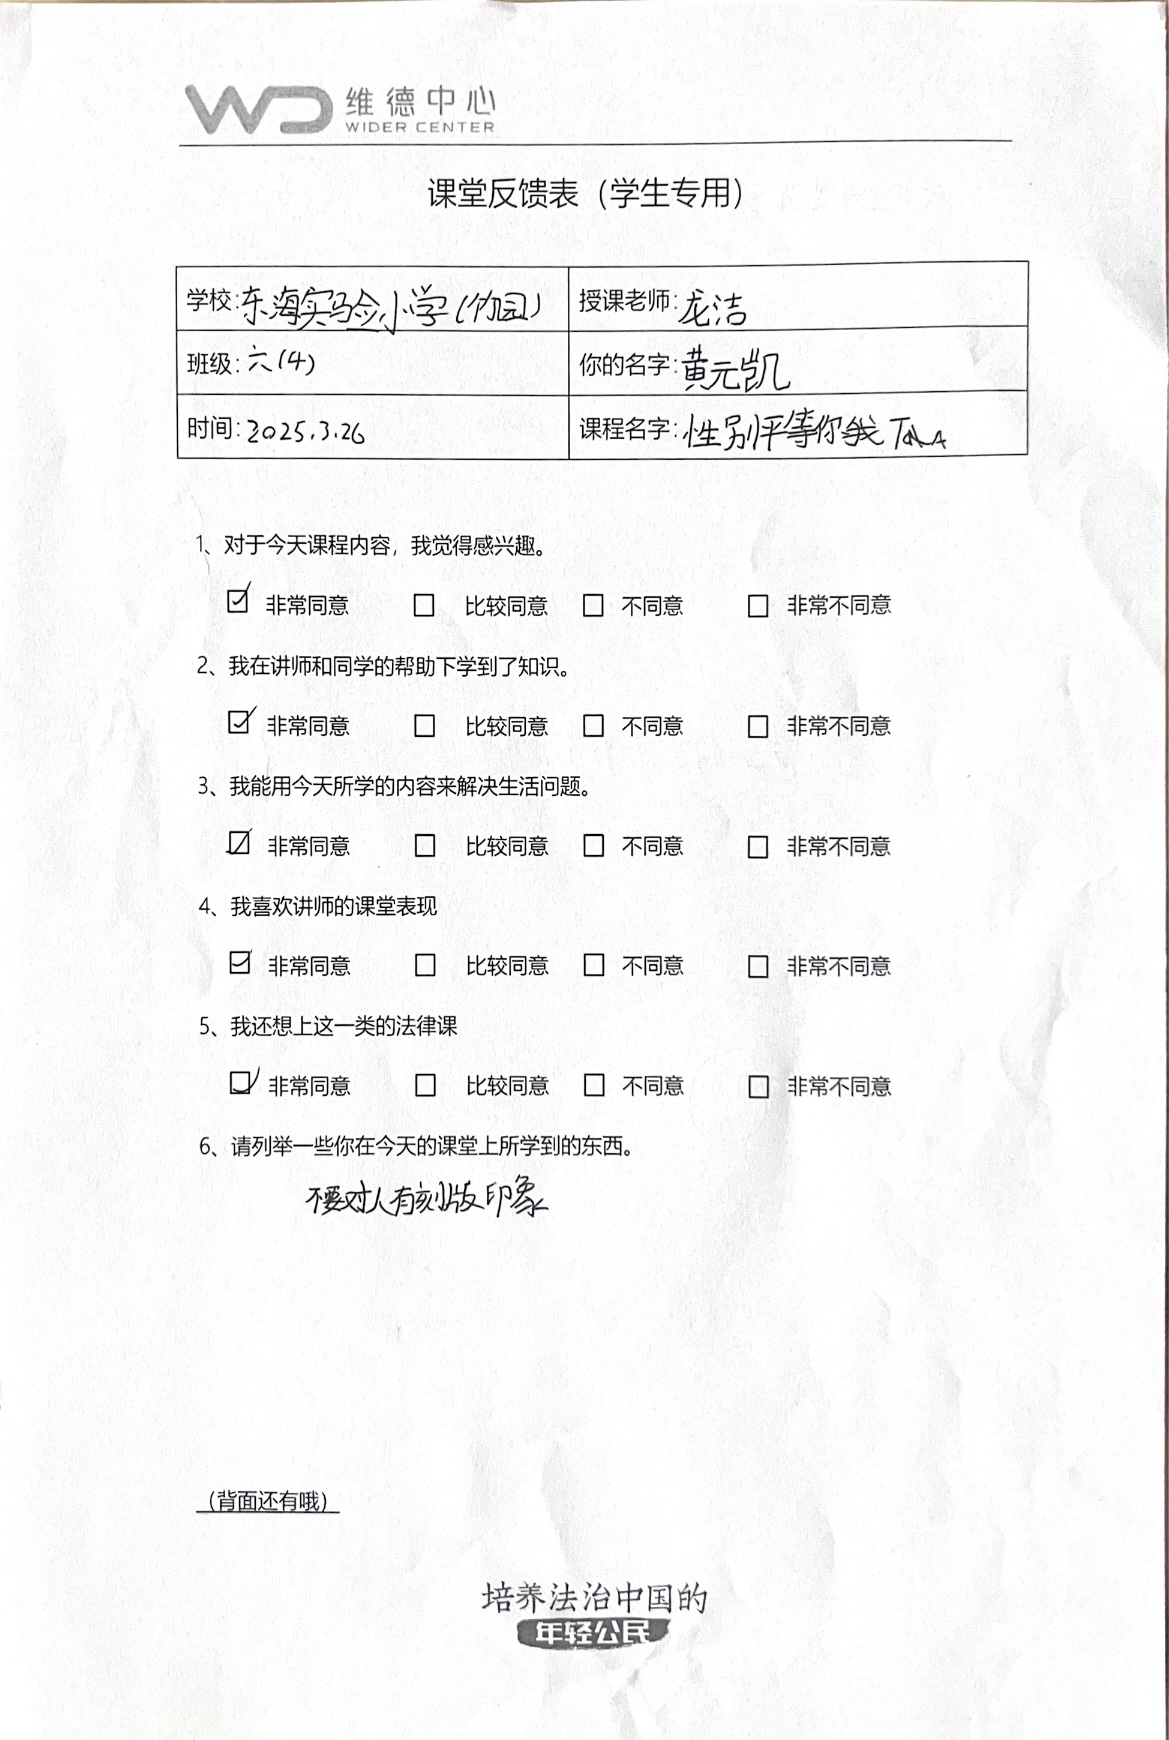 WD 维德中心
WIDER CENTER
课堂反馈表（学生专用）
学校:东海实验小学(竹园) 授课老师:龙洁
班级:六(4) 你的名字:黄元凯
时间:2025.3.26 课程名字:性别平等你我TaA
1、对于今天课程内容，我觉得感兴趣。
☑ 非常同意 □ 比较同意 □ 不同意 □ 非常不同意
2、我在讲师和同学的帮助下学到了知识。
☑ 非常同意 □ 比较同意 □ 不同意 □ 非常不同意
3、我能用今天所学的内容来解决生活问题。
☑ 非常同意 □ 比较同意 □ 不同意 □ 非常不同意
4、我喜欢讲师的课堂表现
☑ 非常同意 □ 比较同意 □ 不同意 □ 非常不同意
5、我还想上这一类的法律课
☑ 非常同意 □ 比较同意 □ 不同意 □ 非常不同意
6、请列举一些你在今天的课堂上所学到的东西。
不要对人有刻版印象
（背面还有哦）
培养法治中国的
年轻公民